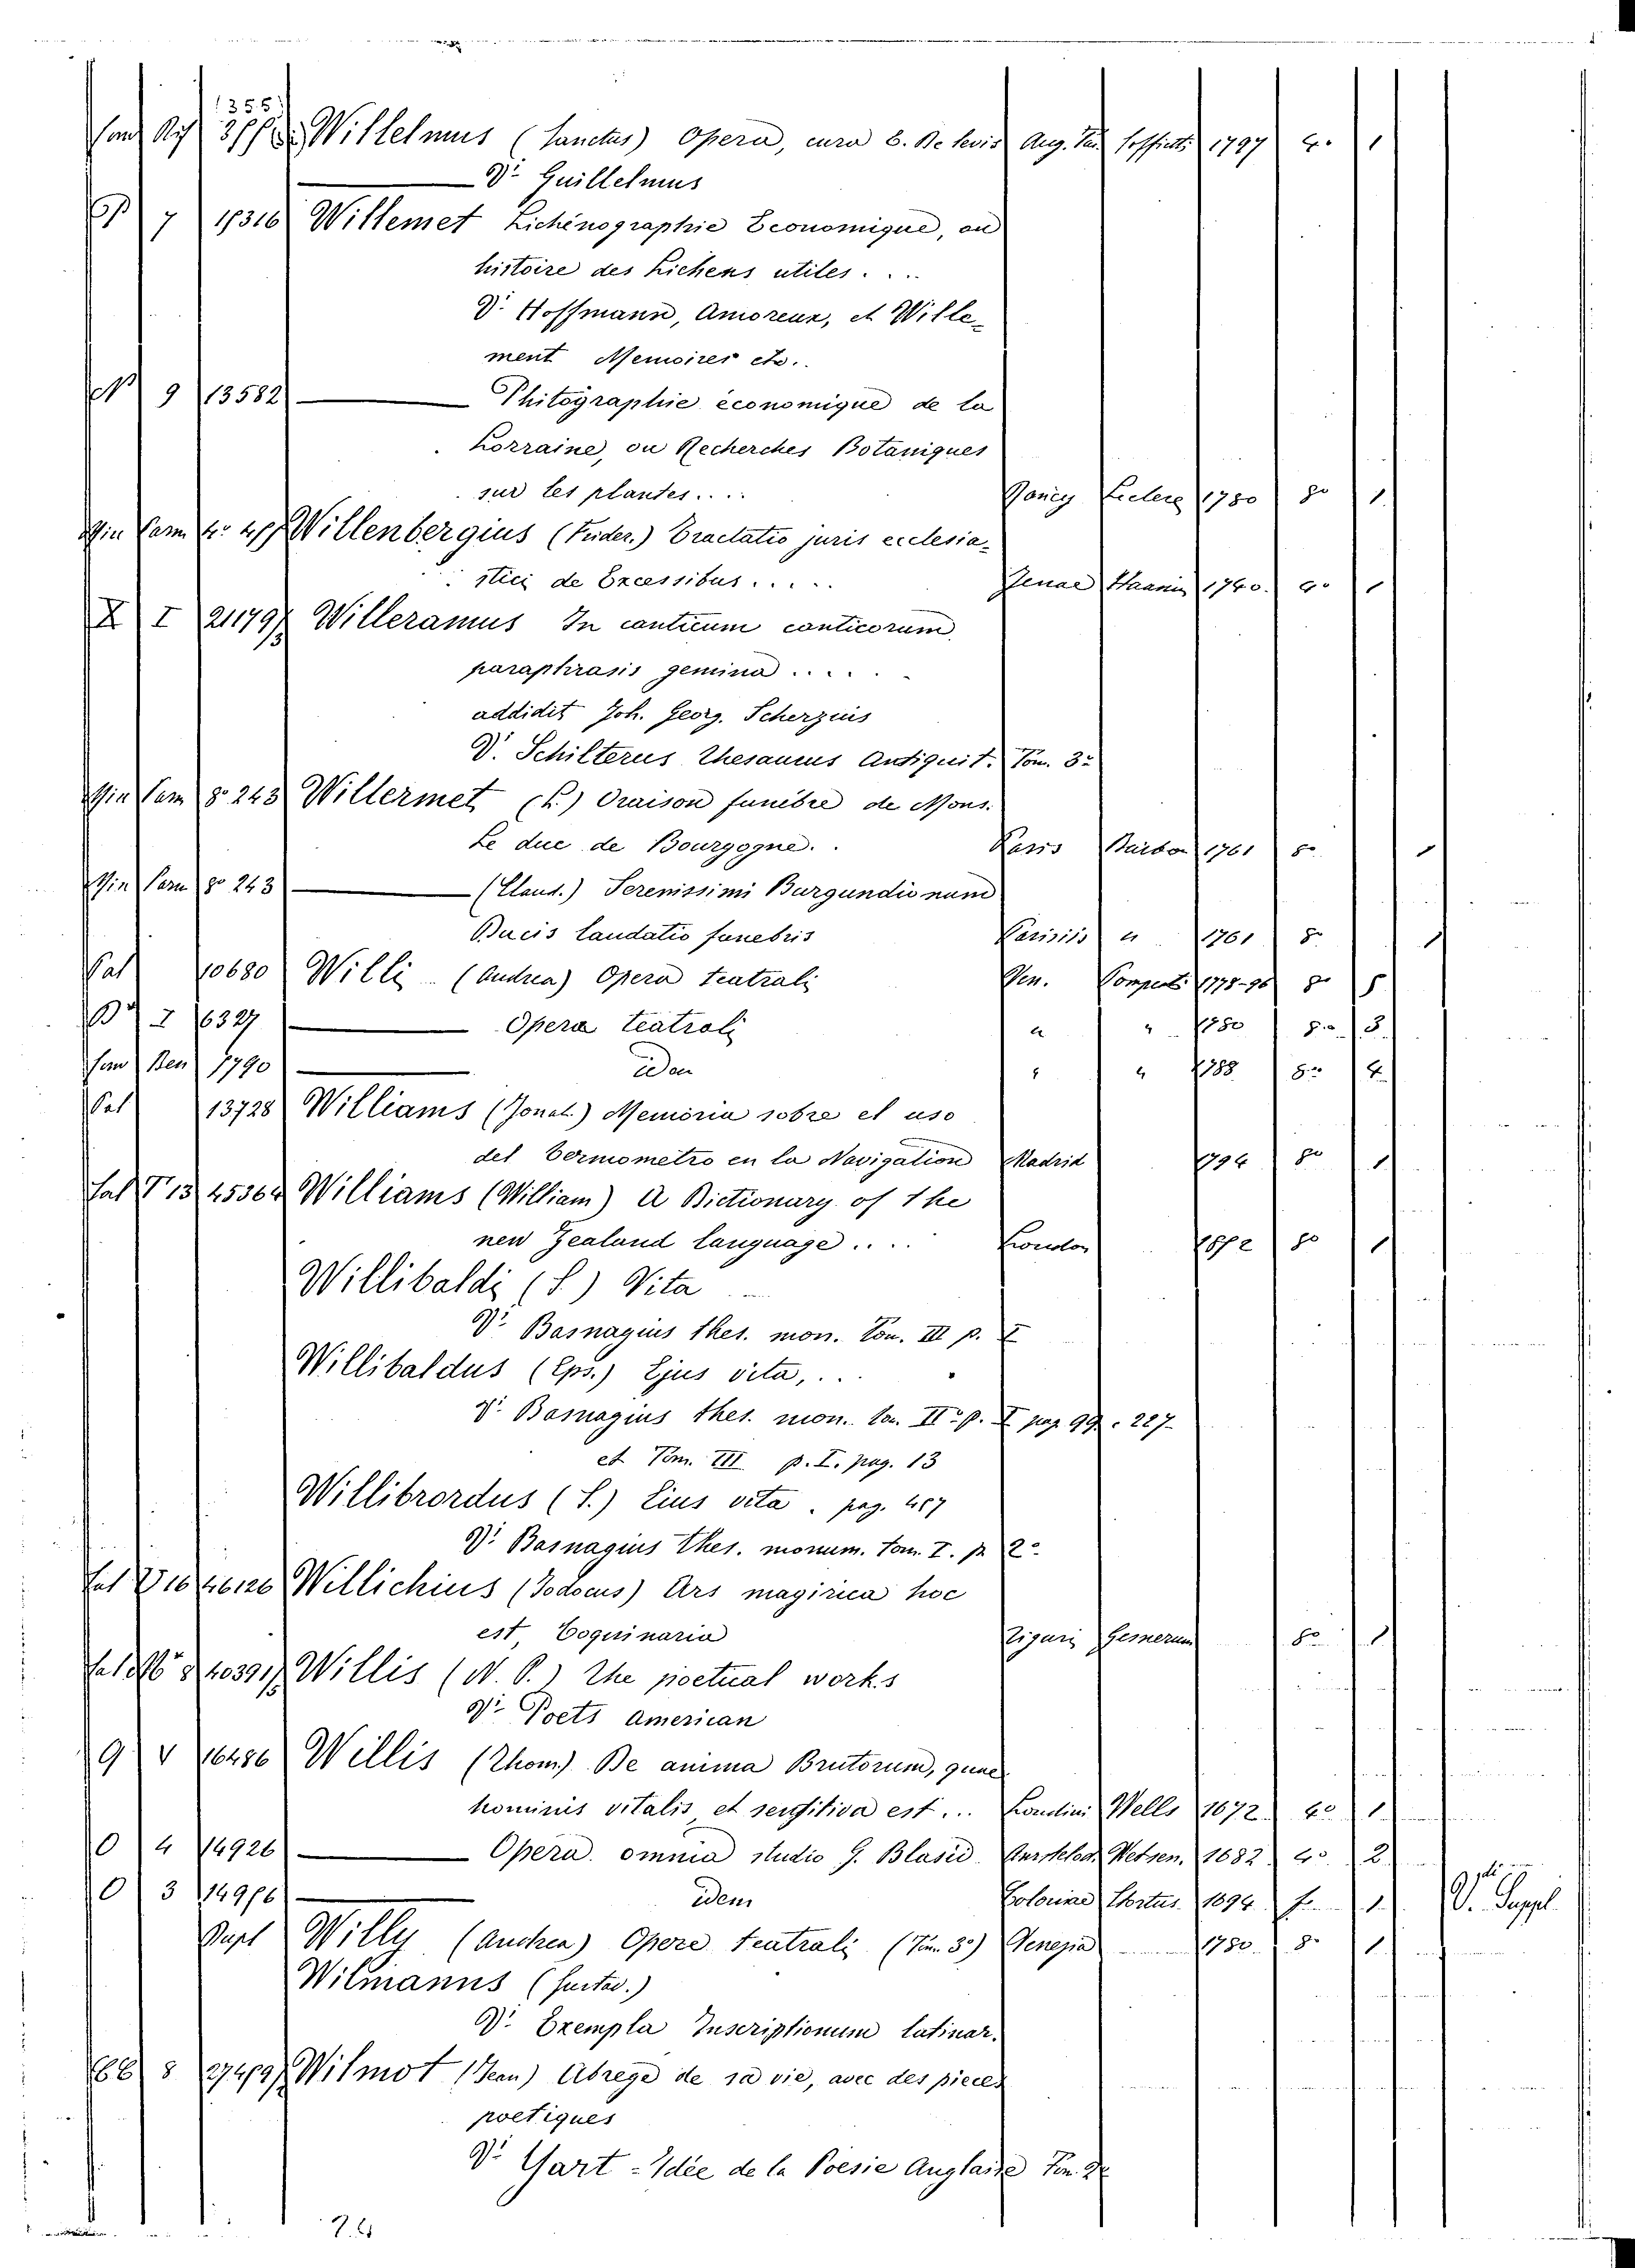 355
Willelmus (Sanctus) Opera, cura B. De Levis Aug. Tau. Soffietti 1797 4º 1
Vi Guillelmus
7 15316 Willemet Lichénographie Economique, ou
histoire des Lichens utiles. ...
Vi Hoffmann, Amoreux, et Wille-
ment Memoires etc..
9 13582 Phitographie économique de la
Lorraine, ou Recherches Botaniques
sur les plantes.... Nancy Leclerc 1780 8º 1
Willenbergius (Frider.) Tractatio juris ecclesia-
stici de Excessibus..... Jenae 1740. 4º 1
X I Willeramus In canticum canticorum
paraphrasis gemina ....
addidit Joh. Georg. Scherzius
Vi Schilterus Thesaurus Antiquit. Tom. 3º
Min Cam 8º 243 Willermet (L.) Oraison funèbre de Mons.
Le duc de Bourgogne.. Paris Barbou 1761 8º 1
Min Cam 8º 243 (Claud.) Serenissimi Burgundionum
Ducis laudatio funebris Parisiis " 1761 8º 1
Sal 10680 Willi (Andrea) Opera teatrali Ven. 1778-96 8º 5
I 6327 Opera teatrali " " 1780 8º 3
San Ben 7790 idem " " 1788 8º 4
Sal 13728 Williams (Jonat.) Memoria sobre el uso
del Termometro en la Navigation Madrid 1794 8º 1
Sal T 13 45364 Williams (William) A Dictionary of the
new Zealand language.... London 8º 1
Willibaldi (S.) Vita
Vi Basnagius thes. mon. Tom. III p. I
Willibaldus (Eps.) Ejus vita, ...
Vi Basnagius thes. mon. Tom. IIº p. I pag. 99. 227
et Tom. III p. I. pag. 13
Willibrordus (S.) Eius vita. pag. 457
Vi Basnagius Thes. monum. tom. I. p. 2º
46126 Willichius (Jodocus) Ars magirica hoc
est, Coquinaria Tiguri Gesnerum 8º 1
Willis (N. P.) The poetical works
Vi Poets American
9 V 16486 Willis (Thom.) De anima Brutorum, quae
hominis vitalis et sensitiva est... Londini Wells 1672 4º 1
O 4 14926 Opera omnia studio G. Blasii Amstelod. Wetsen. 1682 4º 2
O 3 idem Coloniae 1694 f. 1 V. Suppl.
Supl Willy (Andrea) Opere teatrali (Tom. 3º) Venezia 1780 8º 1
Wilmanns (Gustav.)
Vi Exempla Inscriptionum latinar.
8 Wilmot (Jean) Abregé de sa vie, avec des pieces
poétiques
Vi Yart = Idée de la Poésie Anglaise Tom.